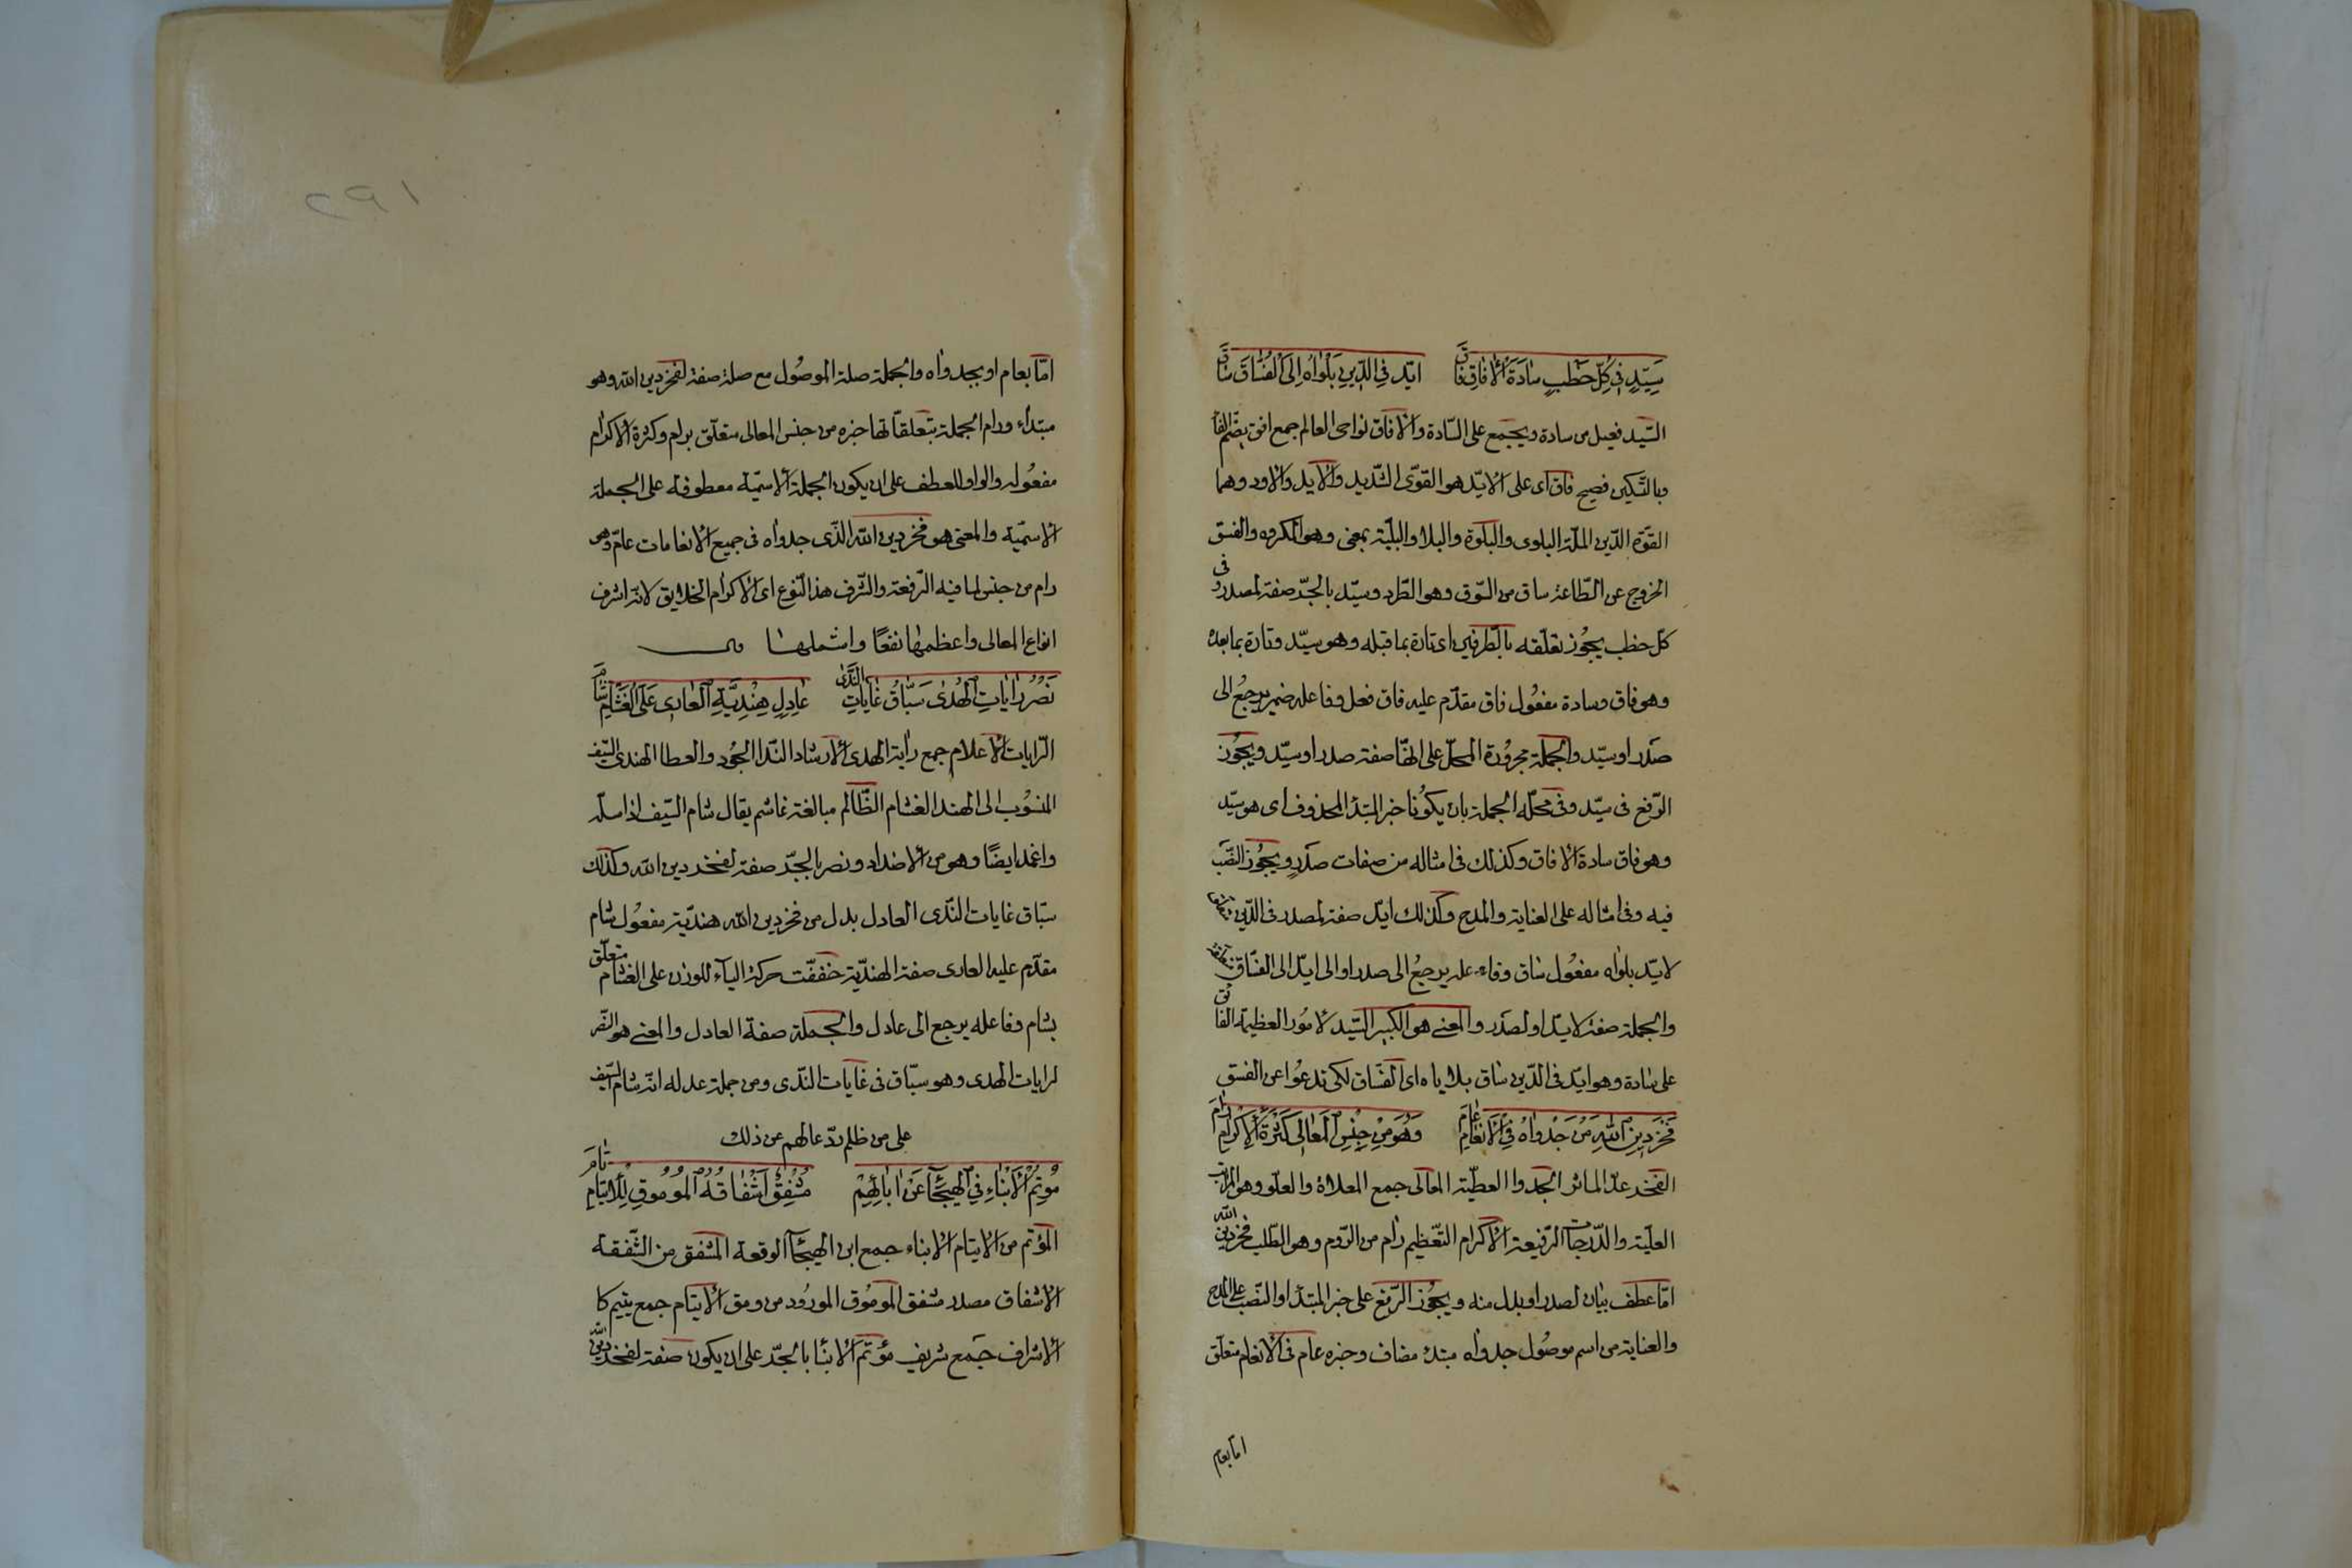 سَيِّدٍ فِي كُلِّ خَطْبٍ سَادَةَ الْأَفَاقِ فَاقَ ايّد فِي الدِّينِ بَلْوَاهُ إِلَى الْفُسَّاقِ سَاقَ
السّيد فعيل من سادة ويجمع على السّادة والافاق نواحى العالم جمع افق بضم الفا
وبالتسكين فصيح فاق اى على الايّد هو القوّى الشّديد والايد والاود وهما
القوّة الدّين الملّة البلوى والبلوة والبلا والبليّة بمعنى وهو المكروه والفسق
الخروج عن الطّاعة ساق من السّوق وهو الطّرد وسيّد بالجرّ صفة لصدر وفى
كلّ خطب يجوز تعلّقه بالطّرفين اى تارة بما قبله وهو سيّد وتارة بما بعده
وهو فاق وسادة مفعول فاق مقدّم عليه فاق فعل وفاعله ضمير يرجع الى
صدر او سيّد والجملة مجرورة المحلّ على انّها صفة صدر او سيّد ويجوز
الرّفع فى سيّد وفى محلّه الجملة بان يكونا خبر المبتدأ المحذوف اى هو سيّد
وهو فاق سادة الافاق وكذلك فى امثاله من صفات صدر ويجوز النّصب
فيه وفى امثاله على العناية والمدح وكذلك ايّد صفة لصدر فى الدّين
لايّد بلواه مفعول ساق وفاعله يرجع الى صدر او الى ايّد الى الفسّاق
والجملة صفة لايّد او لصدر والمعنى هو الكبير السّيد لامور العظيمة الفائق
على سادة وهو ايّد فى الدّين ساق بلاياه اى الفسّاق لكى تدعوا عن الفسق
فَخْرِ دِينِ اللهِ مَنْ جَدْوَاهُ فِي الْأَنْعَامِ عَامَ وَهُوَ مِنْ جِنْسِ الْمَعَالِي كَثْرَةَ الْإِكْرَامِ رَامَ
الفخر عدّ الماثر الجدوا العطيّة المعالى جمع المعلاة والعلّو وهو المراتب
العليّة والدّرجات الرّفيعة الاكرام التّعظيم رام من الرّوم وهو الطّلب فخر دين الله
امّا عطف بيان لصدر او بدل منه ويجوز الرّفع على خبر المبتدأ او النّصب على المدح
والعناية من اسم موصول جدواه مبتدء مضاف وخبره عام فى الانعام متعلّق
امّا بعام
امّا بعام او بجدواه والجملة صلة الموصول مع صلة صفة لفخر دين الله وهو
مبتداء ورام الجملة بتعلقاتها خبره من جنس المعالى متعلّق برام وكثرة الاكرام
مفعوله والواو للعطف على ان يكون الجملة الاسميّة معطوفة على الجملة
الاسميّة والمعنى هو فخر دين الله الذّى جدواه فى جميع الانعامات عامّ وهو
رام من جنس ما فيه الرّفعة والشّرف هذا النّوع اى الاكرام الخلايق لانّه اشرف
انواع المعالى واعظمها نفعًا واشملها
نَصْرُ رَايَاتِ الْهُدَى سَبَّاقُ غَايَاتِ النَّدَى عَادِلٍ هِنْدِيَّةِ الْعَارِي عَلَى الْغَشَّامِ شَامَ
الرّايات الاعلام جمع راية الهدى الارشاد النّدا الجود والعطا الهندى السّيف
المنسوب الى الهند الغشام الظّالم مبالغة غاشم يقال شام السّيف اذا سلّه
واغمد ايضًا وهو من الاضداد ونصر بالجرّ صفة لفخر دين الله وكذلك
سبّاق غايات النّدى العادل بدل من فخر دين الله هنديّة مفعول شام
مقدّم عليه العارى صفة الهنديّة خففّت حركة الياء للوزن على الغشام متعلّق
بشام وفاعله يرجع الى عادل والجملة صفة العادل والمعنى هو النّصر
لرايات الهدى وهو سبّاق فى غايات النّدى ومن جملة عدله انّه شام السّيف
على من ظلم ردّعا لهم عن ذلك
مُوتِمُ الْأَبْنَاءِ فِي الْهَيْجَاءِ عَنْ ابَائِهِمْ مُشْفِقُ اشْفَاقُهُ الْمَوْمُوقُ لِلْأَيْتَامِ تَامَ
المؤتم من الايتام الابناء جمع ابن الهيجآ الوقعة المشفق من الشّفقة
الاشفاق مصدر مشفق الموموق المورود من ومق الايتام جمع يتيم كا
الاشراف جمع شريف مؤتم الابنا بالجرّ على ان يكون صفة لفخر دين الله